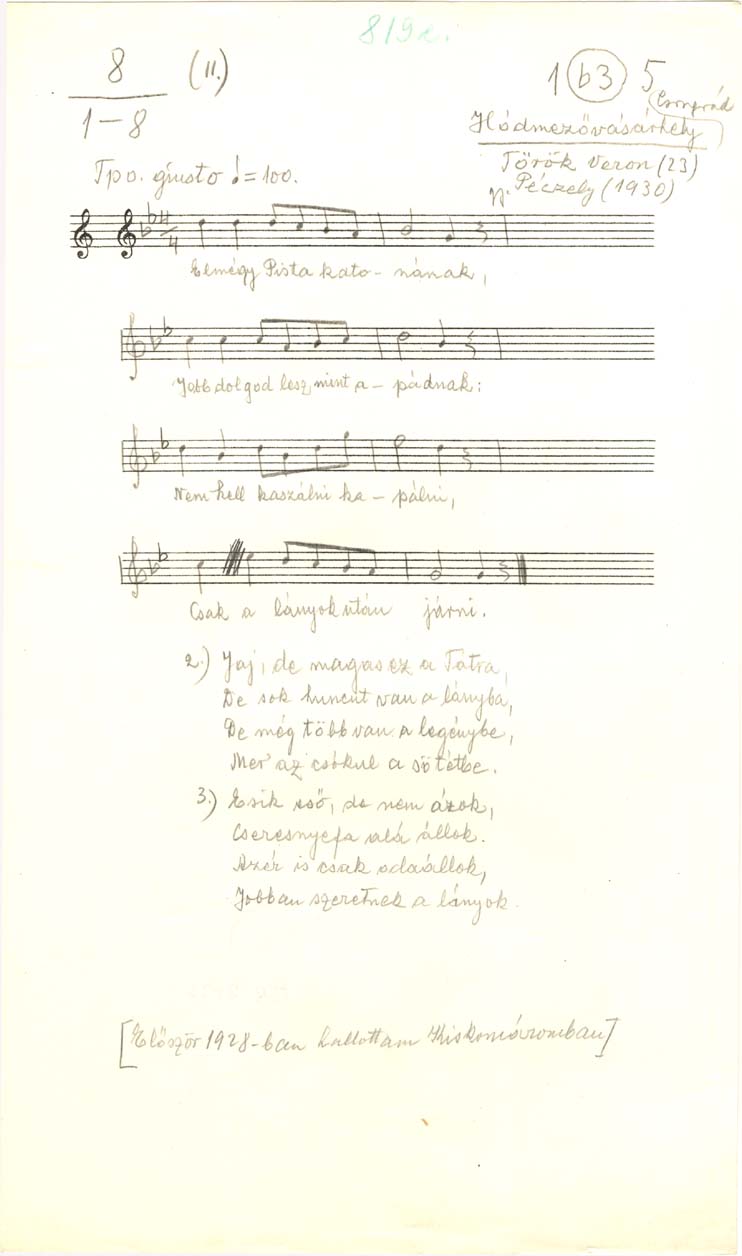 819e.
8 (II.) 1 b3 5
1-8 (Csongrád
Hódmezővásárhely)
Török Veron (23)
Tpo. giusto ♩=100. Péczely (1930)
4
4
Elmégy Pista kato - nának,
Jobb dolgod lesz, mint a - pádnak:
Nem kell kaszálni ka - pálni,
Csak a lányok után járni.
2.) Jaj, de magas ez a Tátra,
De sok huncut van a lányba,
De még több van a legénybe,
Mer' az csókul a sötétbe.
3.) Esik eső, de nem ázok,
Cseresnyefa alá állok.
Azér is csak odaállok,
Jobban szeretnek a lányok.
[Először 1928-ban hallottam Kiskomáromban]